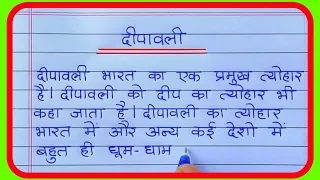 दीपावली
दीपावली भारत का एक प्रमुख त्योहार
है। दीपावली को दीप का त्योहार भी
कहा जाता है। दीपावली का त्योहार
भारत में और अन्य कई देशो में
बहुत ही धूम-धाम